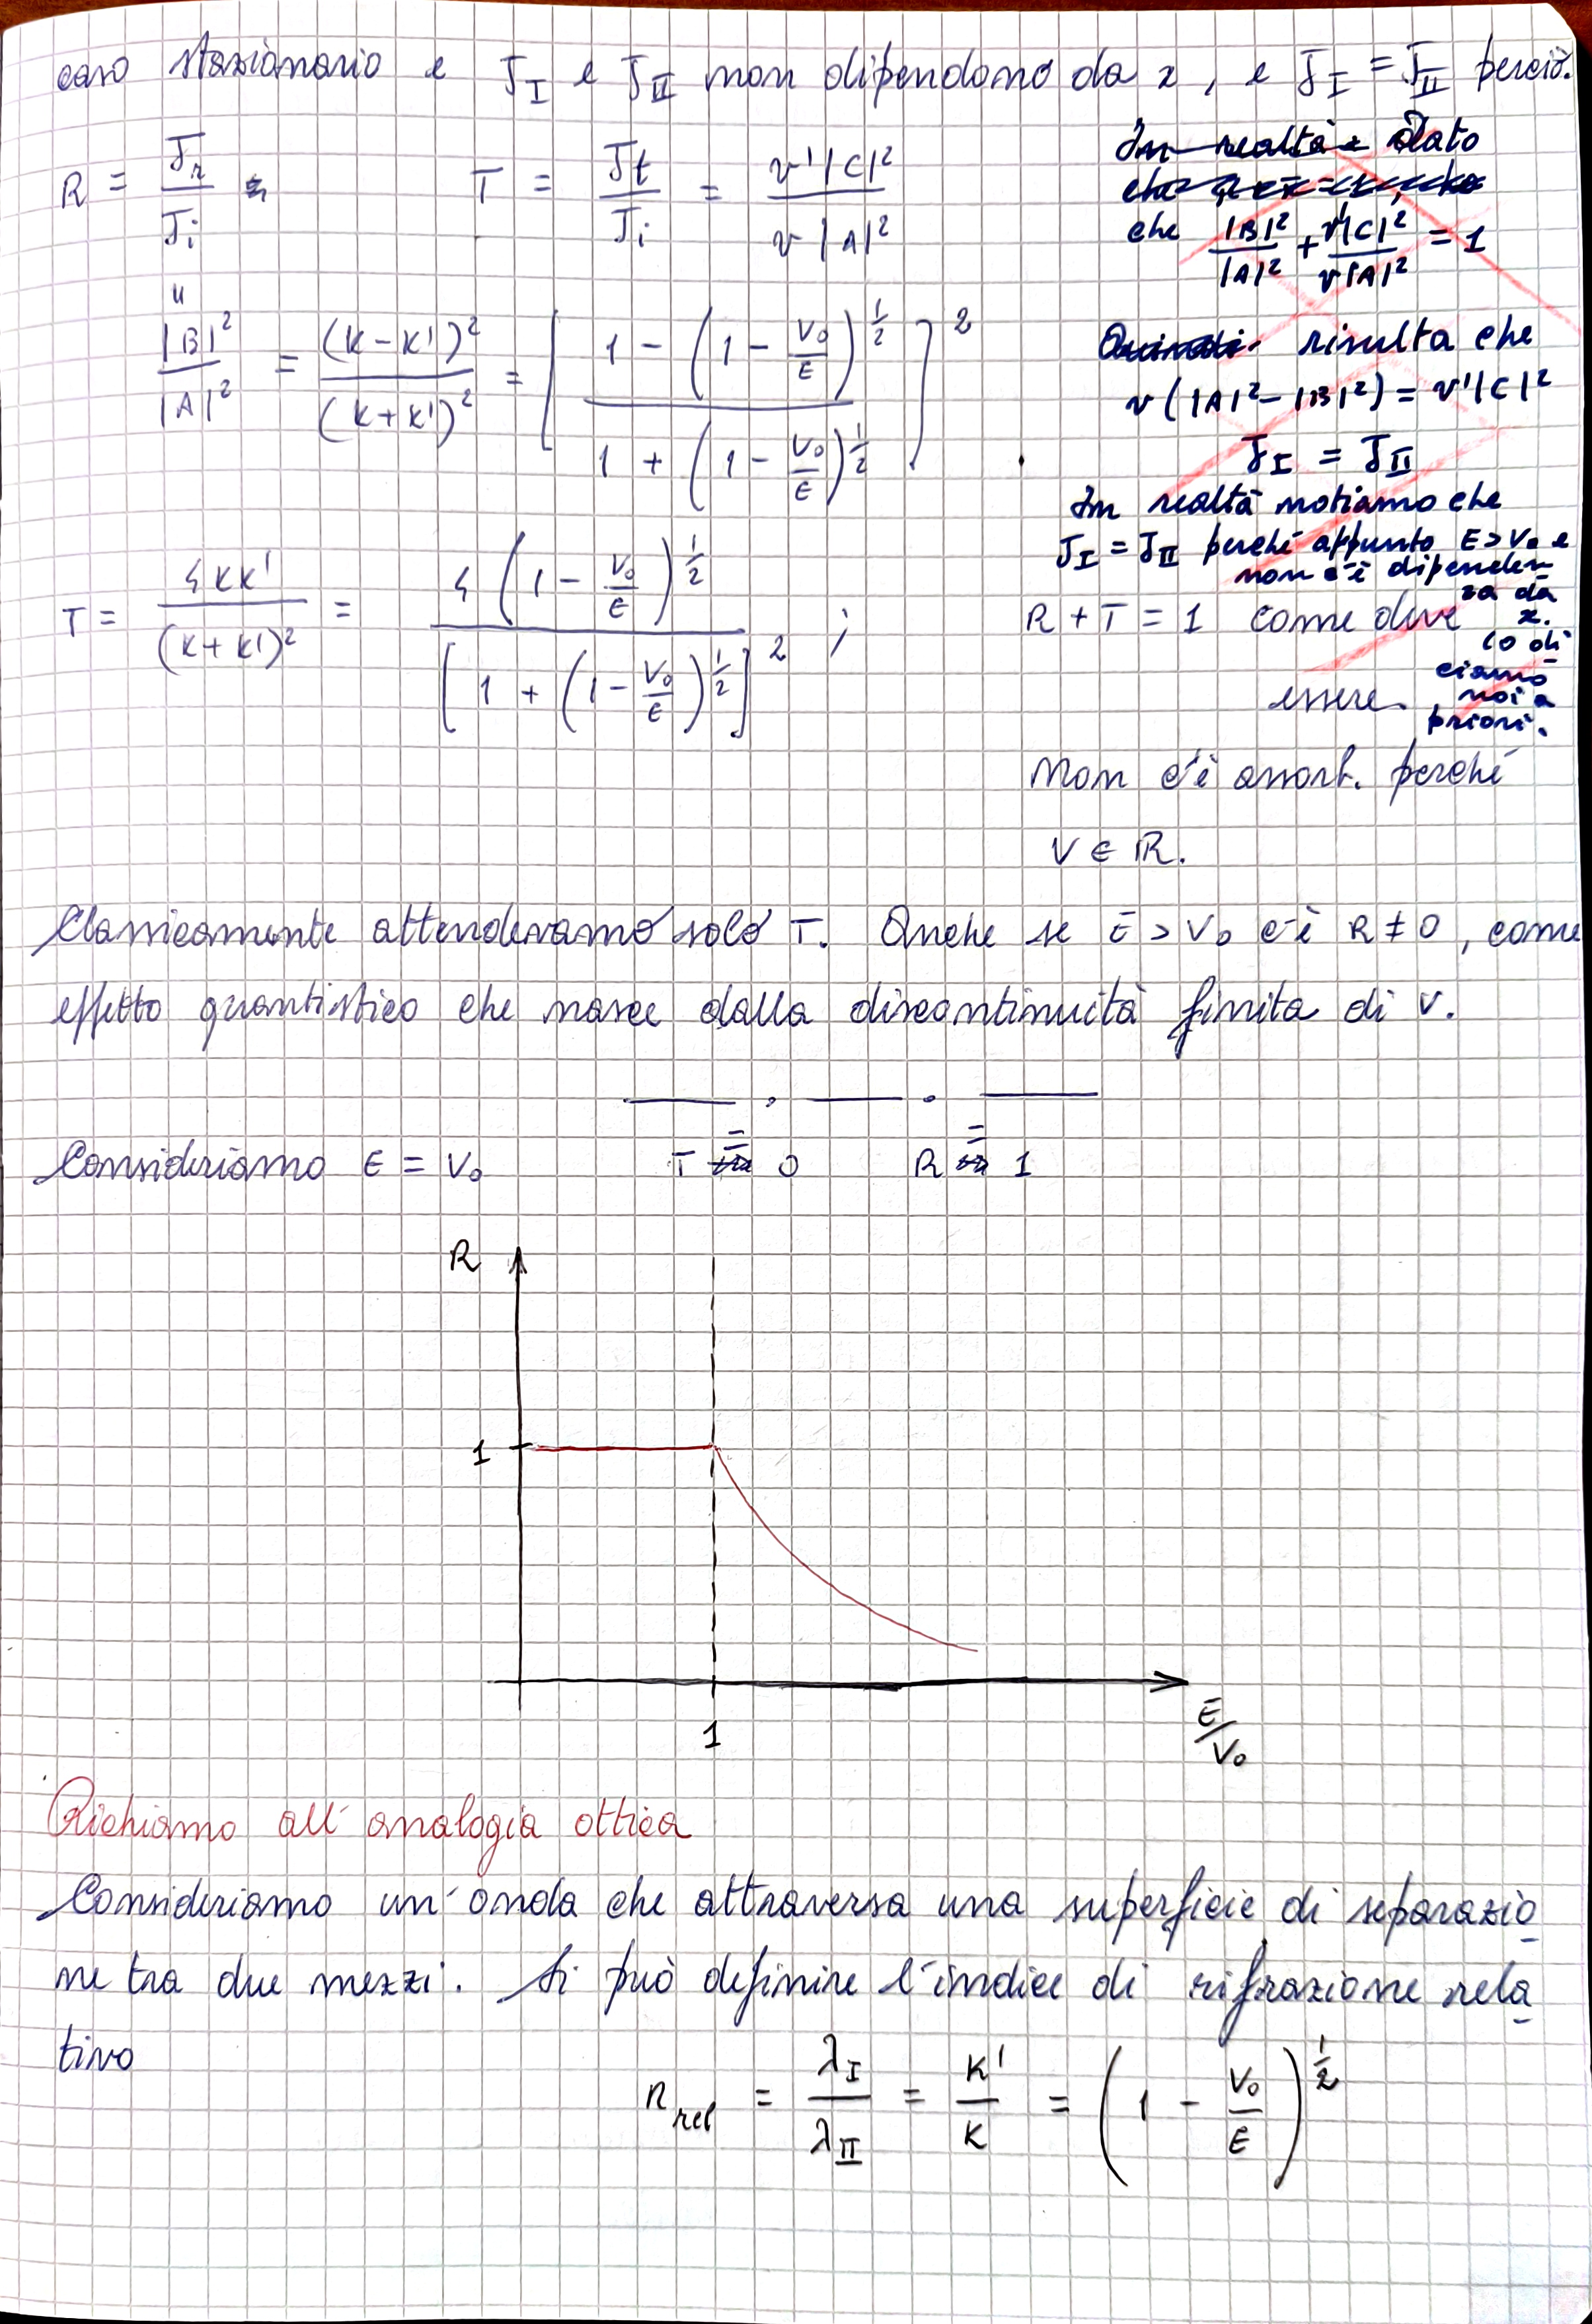 caso stazionario e J_I e J_II non dipendono da x, e J_I = J_II perciò.
R = J_r / J_i =
T = J_t / J_i = v'|C|² / v|A|²
In realtà dato
che
che |B|²/|A|² + v'|C|²/v|A|² = 1
" |B|²/|A|² = (K-K')²/(K+K')² = [ (1 - (1 - V₀/E)^½) / (1 + (1 - V₀/E)^½) ]²
Quindi risulta che
v(|A|² - |B|²) = v'|C|²
J_I = J_II
In realtà notiamo che
J_I = J_II perché appunto E > V₀ e
non c'è dipenden
za da
x.
lo di
ciamo
noi a
priori.
T = 4KK' / (K+K')² = 4(1 - V₀/E)^½ / [1 + (1 - V₀/E)^½]² ;
R + T = 1 come deve
essere.
Non c'è assorb. perché
V ∈ ℝ.
Classicamente attendevamo solo T. Anche se E > V₀ c'è R ≠ 0, come
effetto quantistico che nasce dalla discontinuità finita di V.
Consideriamo E = V₀ T = 0 R = 1
R
1
1
E/V₀
Richiamo all'analogia ottica
Consideriamo un'onda che attraversa una superficie di separazio
ne tra due mezzi. Si può definire l'indice di rifrazione rela
tivo
n_rel = λ_I / λ_II = K'/K = (1 - V₀/E)^½